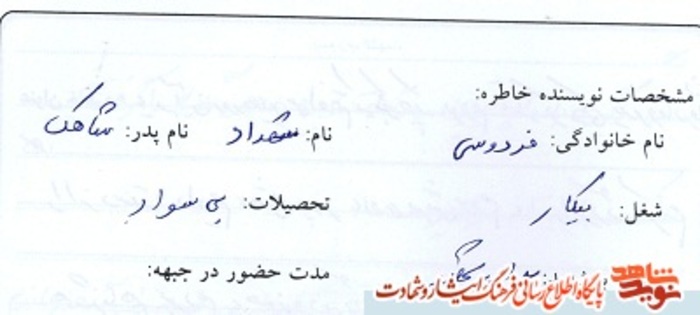 مشخصات نویسنده خاطره:
نام خانوادگی: فردوسی نام: شهداد نام پدر:
شغل: بیکار تحصیلات: بی سواد
مدت حضور در جبهه:
نوید شاهد پایگاه اطلاع رسانی فرهنگ ایثار و شهادت